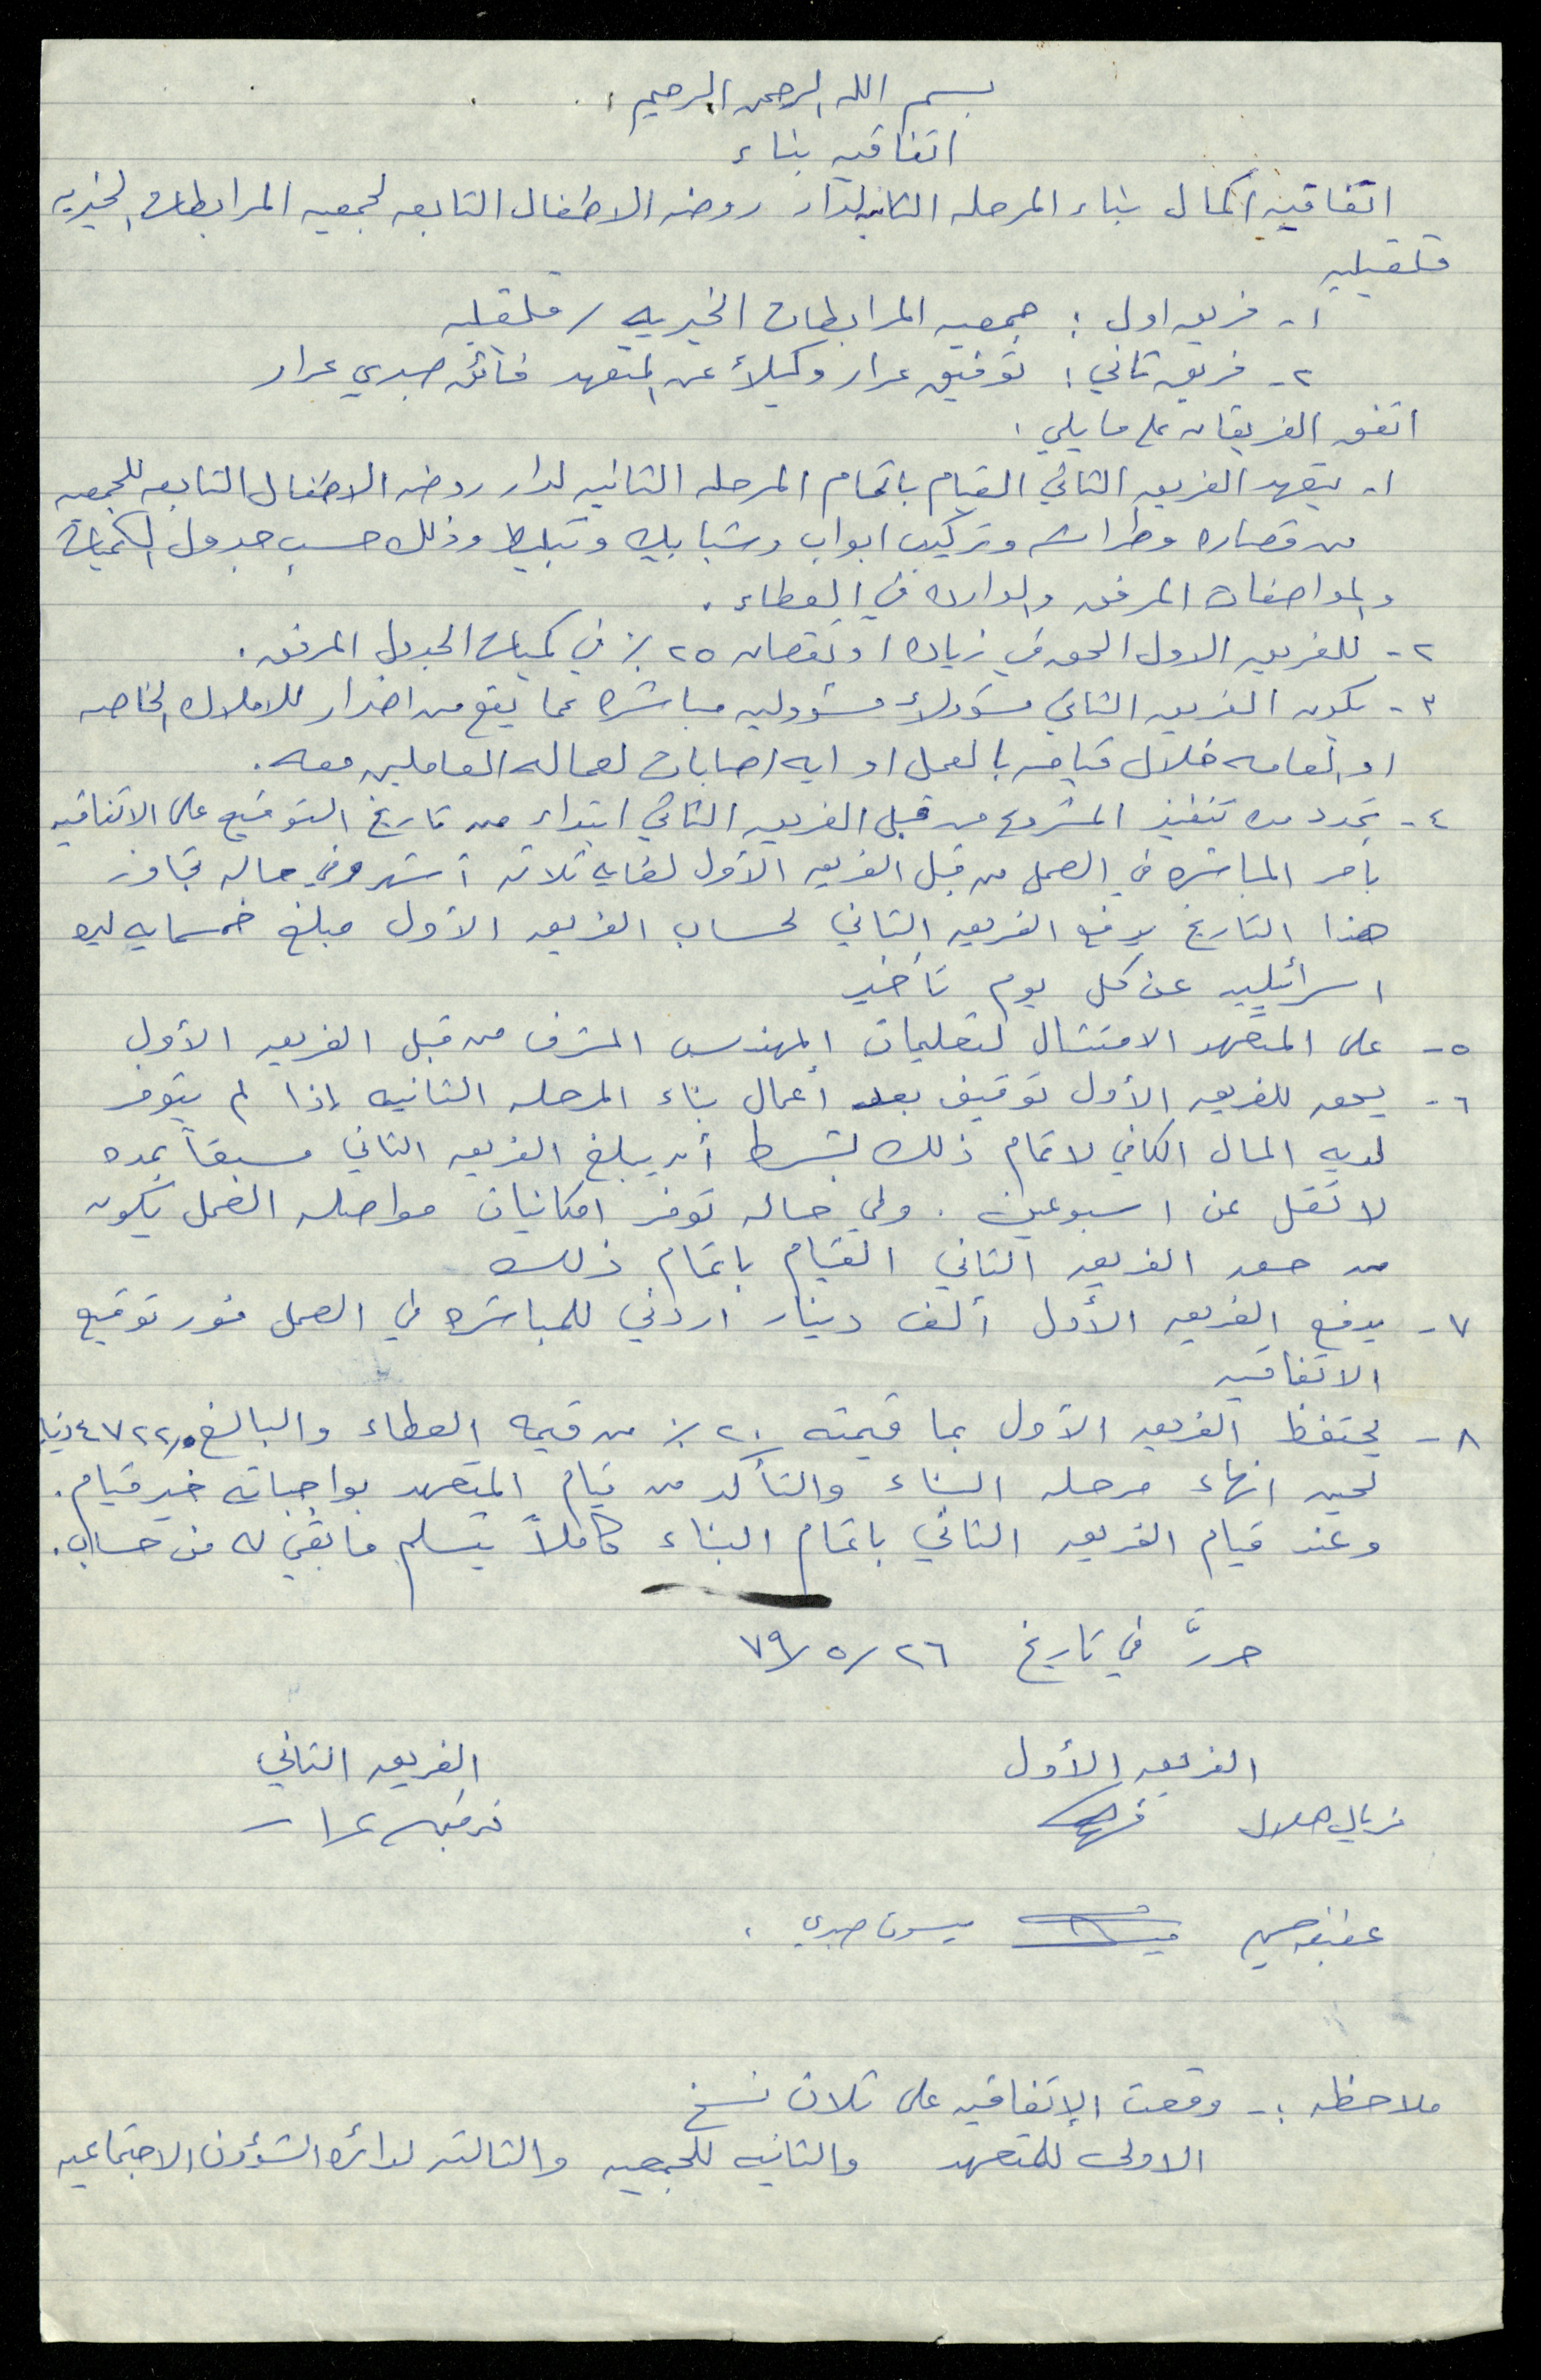 بسم الله الرحمن الرحيم
اتفاقيه بناء
اتفاقيه اكمال بناء المرحله الثانيه لدار روضه الاطفال التابعه لجمعيه المرابطات الخيريه
قلقيليه
١- فريق اول : جمعيه المرابطات الخيريه / قلقليه
٢- فريق ثاني : توفيق عرار وكيلاً عن المتعهد فائق صبري عرار
اتفق الفريقان على ما يلي :
١- يتعهد الفريق الثاني القيام باتمام المرحله الثانيه لدار روضه الاطفال التابعه للجمعيه
من قصاره وطراشه وتركيب ابواب وشبابيك وتبليط وذلك حسب جدول الكميات
والمواصفات المرفق والوارده في العطاء .
٢- للفريق الاول الحق في زياده او نقصان ٢٥ ٪ في كميات الجدول المرفق .
٣- يكون الفريق الثاني مسؤولاً مسؤوليه مباشره عما يقع من اضرار للاملاك الخاصه
او العامه خلال قيامه بالعمل او ايه اصابات لعماله العاملين معه .
٤- تحدد مده تنفيذ المشروع من قبل الفريق الثاني ابتداء من تاريخ التوقيع على الاتفاقيه
بامر المباشره في العمل من قبل الفريق الأول لغايه ثلاثه أشهر وفي حاله تجاوز
هذا التاريخ يدفع الفريق الثاني لحساب الفريق الأول مبلغ خمسمايه ليره
اسرائيليه عن كل يوم تأخير
٥- على المتعهد الامتثال لتعليمات المهندس المشرف من قبل الفريق الأول
٦- يحق للفريق الأول توقيف بعض أعمال بناء المرحله الثانيه إذا لم يتوفر
لديه المال الكافي لاتمام ذلك بشرط أن يبلغ الفريق الثاني مسبقاً بمده
لا تقل عن اسبوعين . وفي حاله توفر امكانيات مواصله العمل يكون
من حق الفريق الثاني القيام باتمام ذلك
٧- يدفع الفريق الأول ألف دينار اردني للمباشره في العمل فور توقيع
الاتفاقيه
٨- يحتفظ الفريق الأول بما قيمته ٢٠ ٪ من قيمه العطاء والبالغ
لحين انهاء مرحله البناء والتأكد من قيام المتعهد بواجباته خير قيام .
وعند قيام الفريق الثاني باتمام البناء كاملاً يتسلم ما بقي له من حساب .
حررَّ في تاريخ ٢٦ / ٥ / ٧٩
الفريق الأول الفريق الثاني
فريال هلال توفيق عرار
ميسون صبري
ملاحظه :- وقعت الإتفاقيه على ثلاث نسخ
الاولى للمتعهد والثانيه للجمعيه والثالثه لدائره الشؤون الاجتماعيه